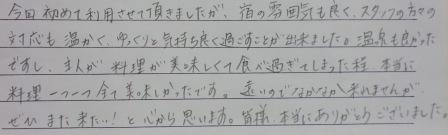 今回初めて利用させて頂きましたが、宿の雰囲気も良く、スタッフの方々の
対応も温かく、ゆっくりと気持ち良く過ごすことが出来ました。温泉も良かった
ですし、主人が料理が美味しくて食べ過ぎてしまった程、本当に
料理一つ一つ全て美味しかったです。遠いのでなかなか来れませんが、
ぜひまた来たい!と心から思います。皆様、本当にありがとうございました。